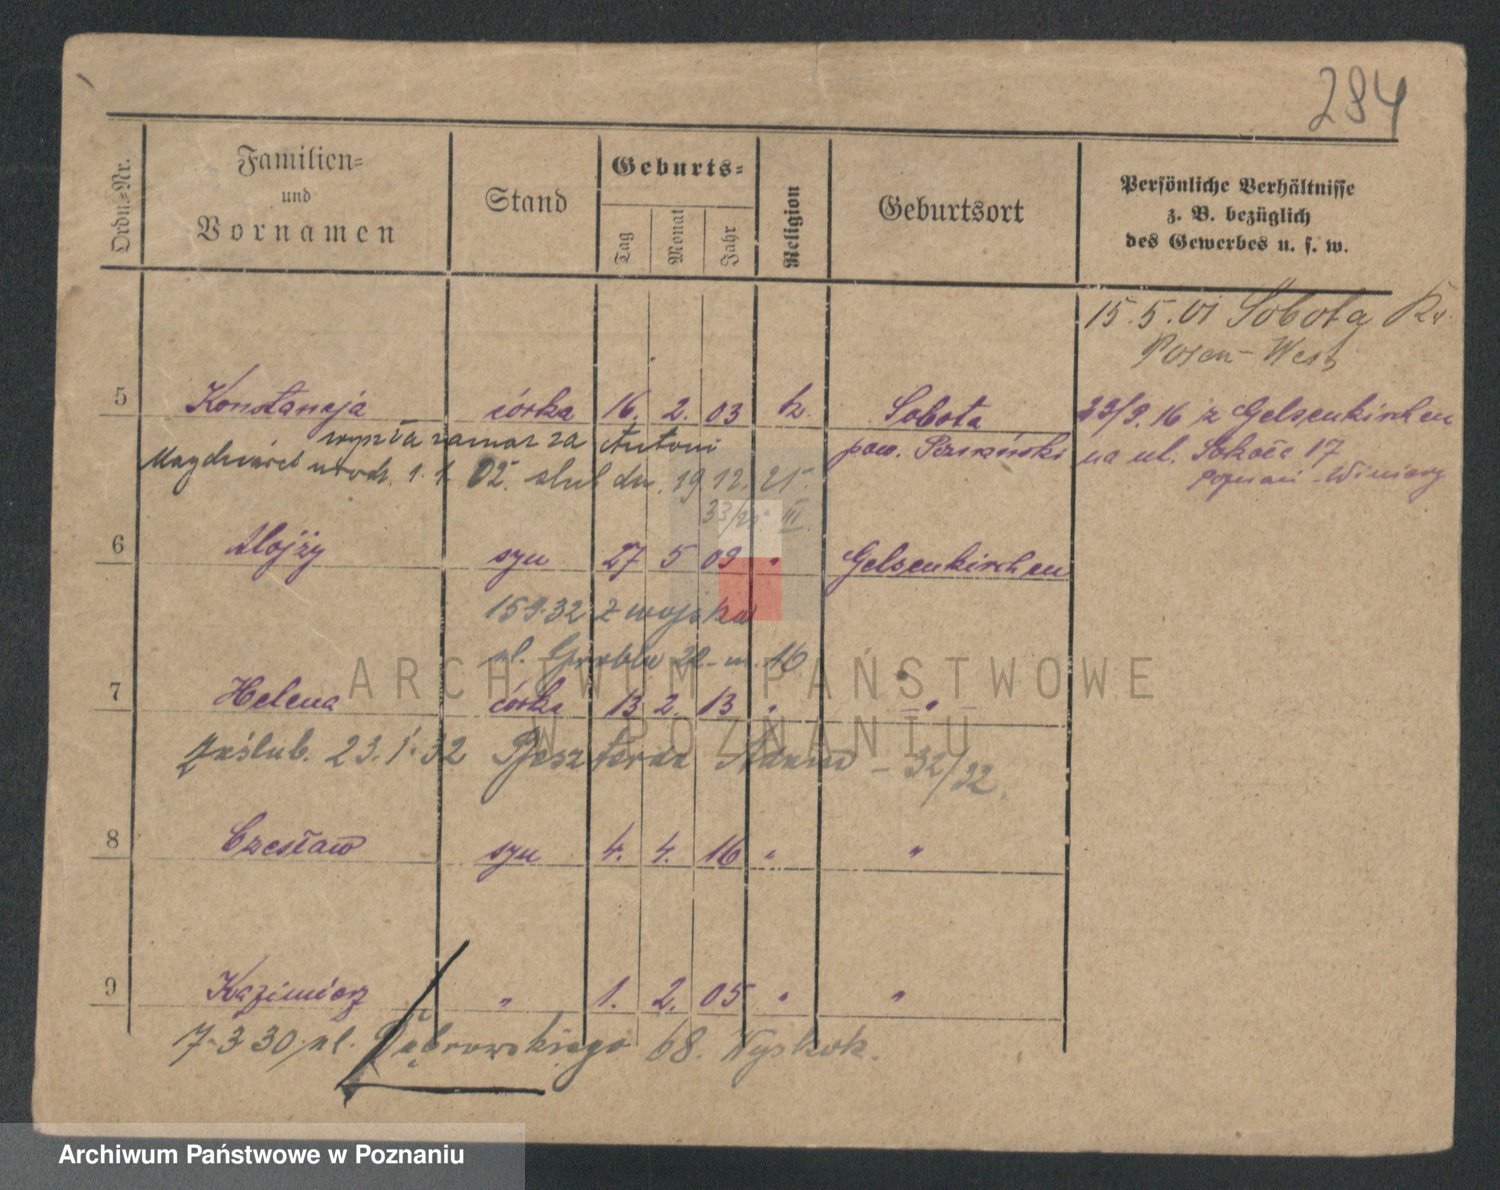 284
Ordn.=Nr.
Familien=
und
Vornamen
Stand
Geburts=
Tag
Monat
Jahr
Religion
Geburtsort
Persönliche Verhältnisse
z. B. bezüglich
des Gewerbes u. s. w.
15.5.01 Sobota Kr.
Posen-West
5 Konstancja córka 16. 2. 03 k. Sobota 23/9.16 z Gelsenkirchen
wyszła zamąż za Antoni pow. Poznański na ul. Sokoła 17
urodz. 1.1.02. ślub dn. 19 12. 25. Poznań-Winiary
33/25 III.
6 Alojzy syn 27 5 09 " Gelsenkirchen
15 9.32 z wojska
ul. Grobla 22 m. 16
7 Helena córka 13 2. 13 " "
Zaślub. 23.1.32 Adam – 32/32.
8 Czesław syn 4. 4. 16 " "
9 Kazimierz " 1. 2. 05 " "
7.3 30 ul. Dąbrowskiego 68. Wyskok.
ARCHIWUM PAŃSTWOWE
W POZNANIU
Archiwum Państwowe w Poznaniu